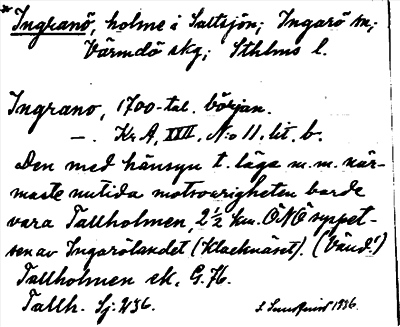 *Ingranö, holme i Saltsjön; Ingarö sn;
Värmdö skg; Sthlms l.
Ingrano, 1700-tal. början.
—. Kr A, XIII. N:o 11. lit. b.
Den med hänsyn t. läge m. m. när-
maste nutida motsvarigheten borde
vara Tallholmen, 2½ km. ÖNÖ syppet-
sen av Ingarölandet (Klacknäset). (Vänd!)
Tallholmen ek. G. 76.
Tallh. Sj: 436.
1936.